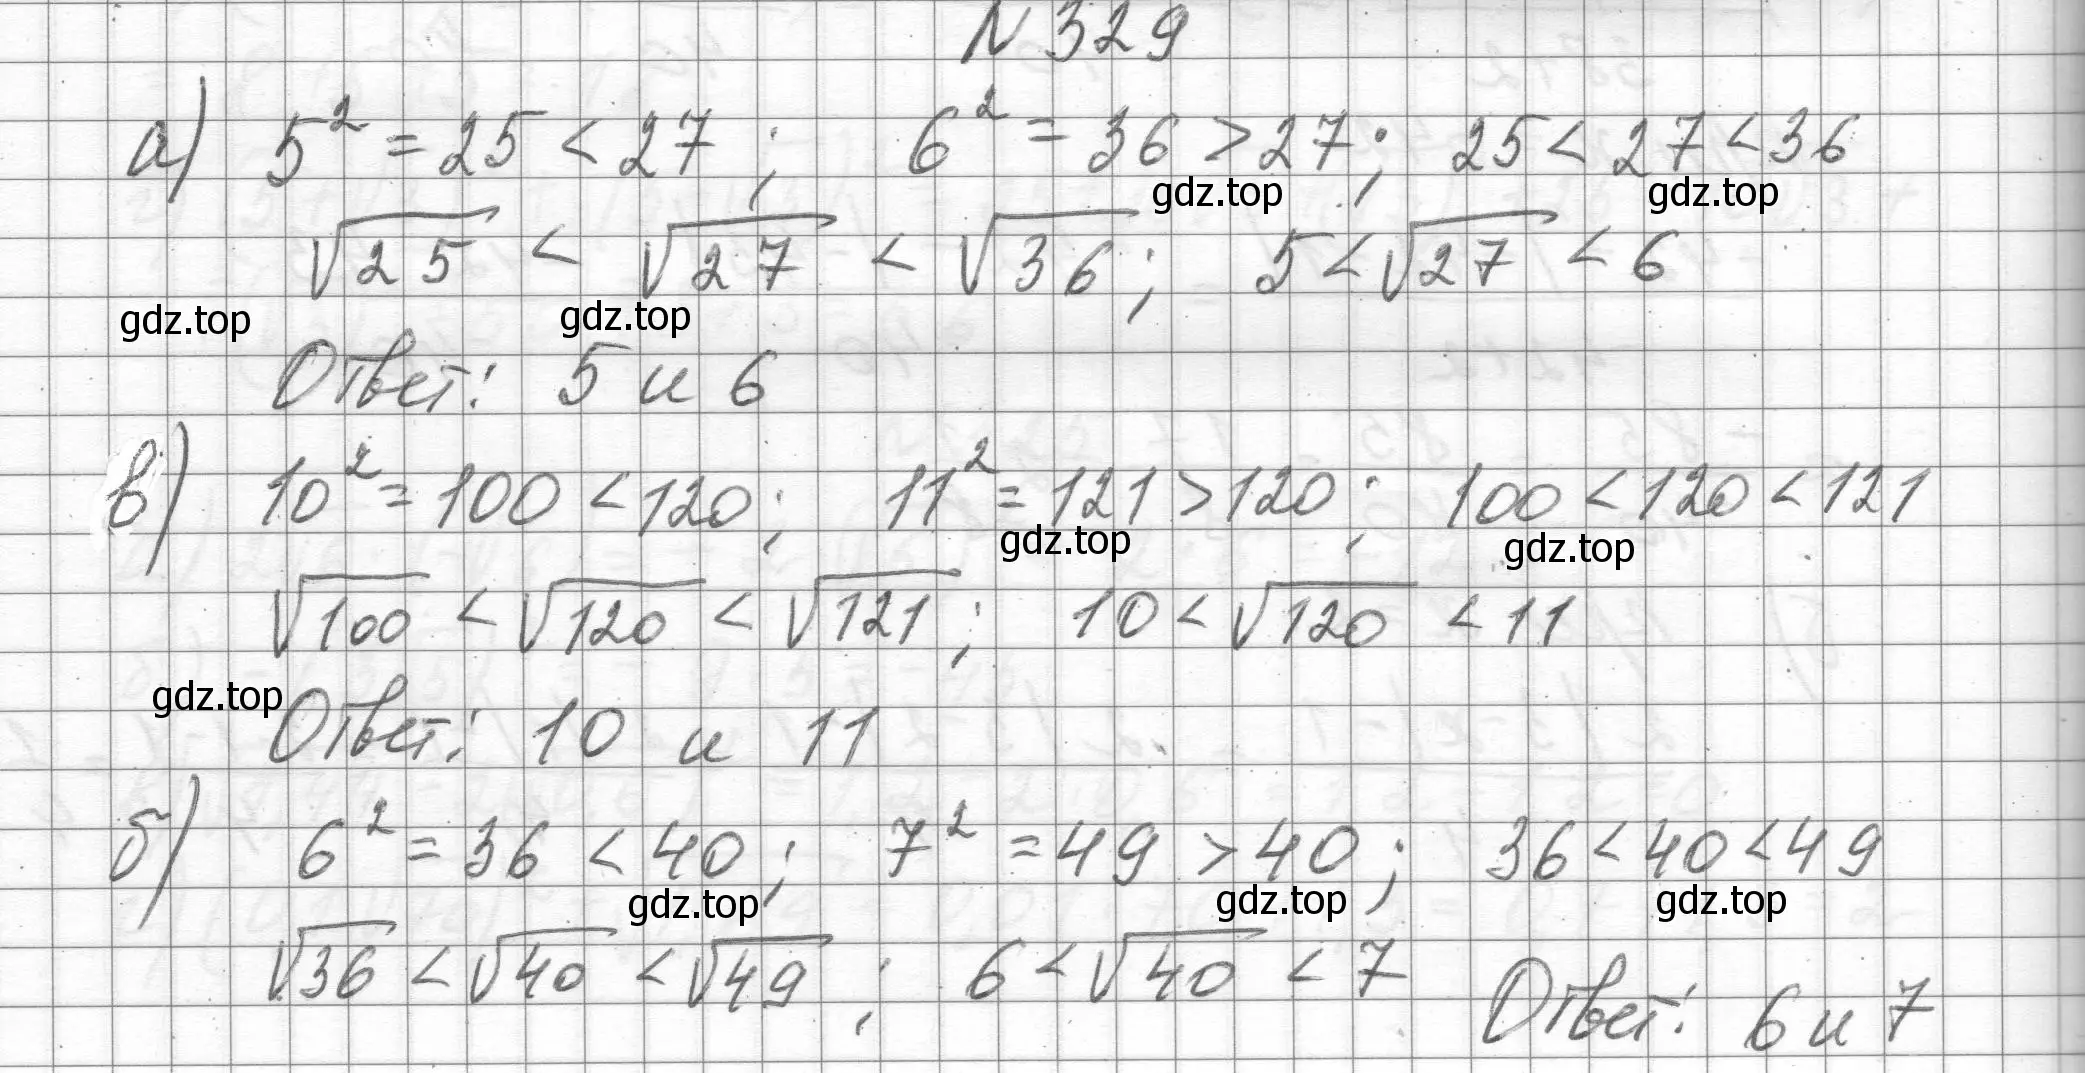 N 329
а) 5² = 25 < 27 ; 6² = 36 > 27 ; 25 < 27 < 36
gdz.top gdz.top
√25 < √27 < √36 ; 5 < √27 < 6
gdz.top gdz.top
Ответ: 5 и 6
в) 10² = 100 < 120 ; 11² = 121 > 120 ; 100 < 120 < 121
gdz.top gdz.top
√100 < √120 < √121 ; 10 < √120 < 11
gdz.top
Ответ: 10 и 11
б) 6² = 36 < 40 ; 7² = 49 > 40 ; 36 < 40 < 49
gdz.top gdz.top gdz.top
√36 < √40 < √49 ; 6 < √40 < 7 Ответ: 6 и 7